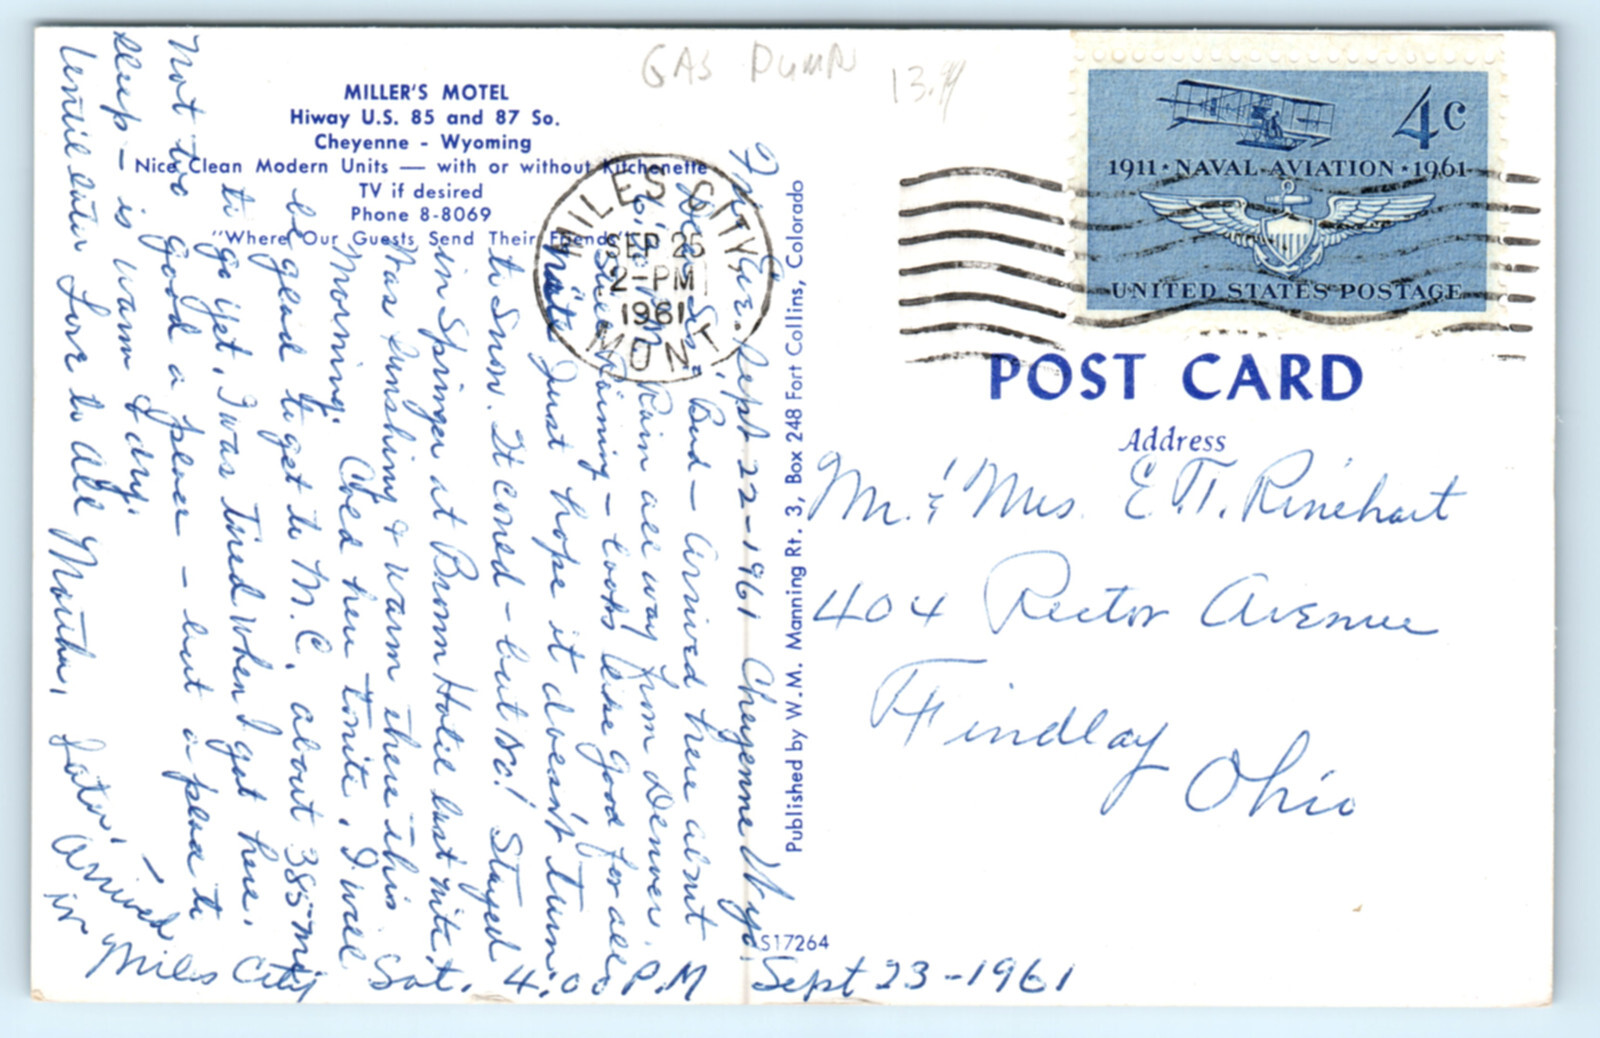 GAS PUMPS 13.99
MILLER'S MOTEL
Hiway U.S. 85 and 87 So.
Cheyenne - Wyoming
Nice Clean Modern Units — with or without Kitchenette
TV if desired
Phone 8-8069
"Where Our Guests Send Their Friends"
MILES CITY,
SEP 25
2-PM
1961
MONT.
4c
1911 • NAVAL AVIATION • 1961
UNITED STATES POSTAGE
POST CARD
Address
Mr. & Mrs. E. T. Rinehart
404 Rector Avenue
Findlay
Ohio
Published by W.M. Manning Rt. 3, Box 248 Fort Collins, Colorado
S17264
Fri. Eve. Sept 22-1961 Cheyenne Wyo.
Bud - Arrived here about
Rain all way from Denver.
raining - looks like good for all
nite Just hope it doesn't turn
to Snow. It cored - but so! Stayed
in Springer at Brown Hotel last nite.
Was Sunshing & warm there this
Morning. Coed here tonite, I will
be glad to get to M.C. about 385 mi
to go yet, I was tired when I got here.
Not too good a place - but a place to
sleep - is warm & dry.
Untill later Love to all Mother,
Later, - Arrived
in Miles City Sat. 4:00 P.M Sept 23-1961